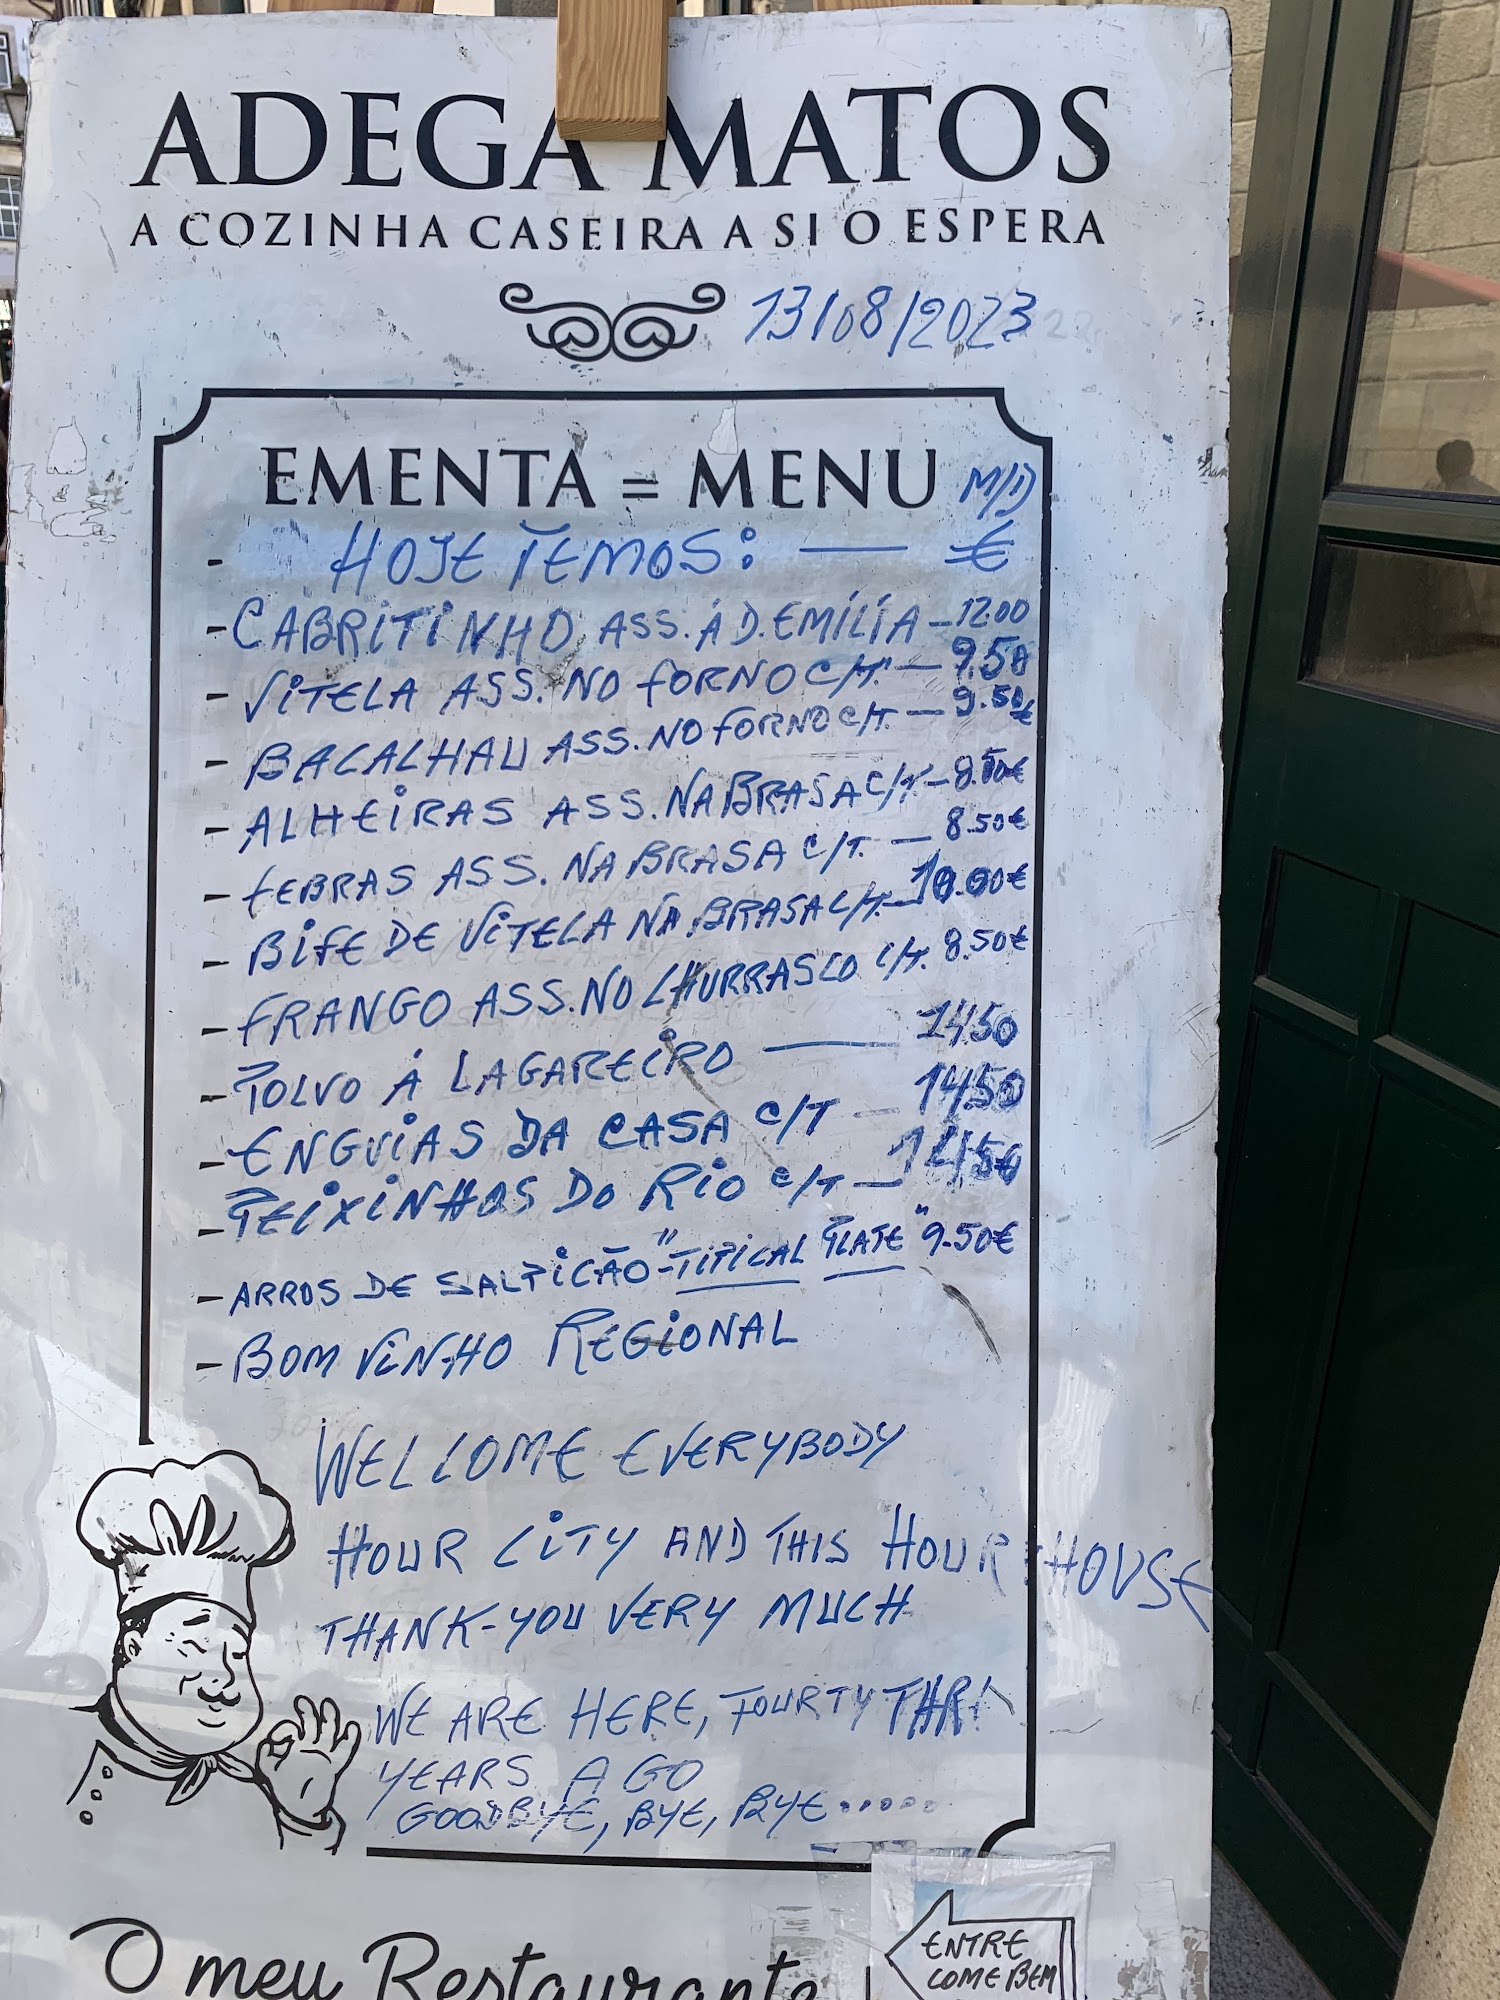 ADEGA MATOS
A COZINHA CASEIRA A SI O ESPERA
13/08/2023
EMENTA = MENU M/D
- HOJE TEMOS: — €
- CABRITINHO ASS. Á D. EMÍLÍA - 12.00
- VITELA ASS. NO FORNO C/T. — 9.50
- BACALHAU ASS. NO FORNO C/T. — 9.50€
- ALHEIRAS ASS. NA BRASA C/T - 8.50€
- FEBRAS ASS. NA BRASA C/T. — 8.50€
- BIFE DE VITELA NA BRASA C/T. - 10.00€
- FRANGO ASS. NO CHURRASCO C/T. 8.50€
- POLVO Á LAGAREIRO — 14.50
- ENGUIAS DA CASA C/T — 14.50
- PEIXINHOS DO RIO C/T — 14.50
- ARROS DE SALPICÃO "TIPICAL PLATE" 9.50€
- BOM VINHO REGIONAL
WELCOME EVERYBODY
HOUR CITY AND THIS HOUR HOUSE
THANK-YOU VERY MUCH
WE ARE HERE, FOURTY
YEARS AGO
GOODBYE, BYE, BYE.....
O meu Restaurante
ENTRE
COME BEM